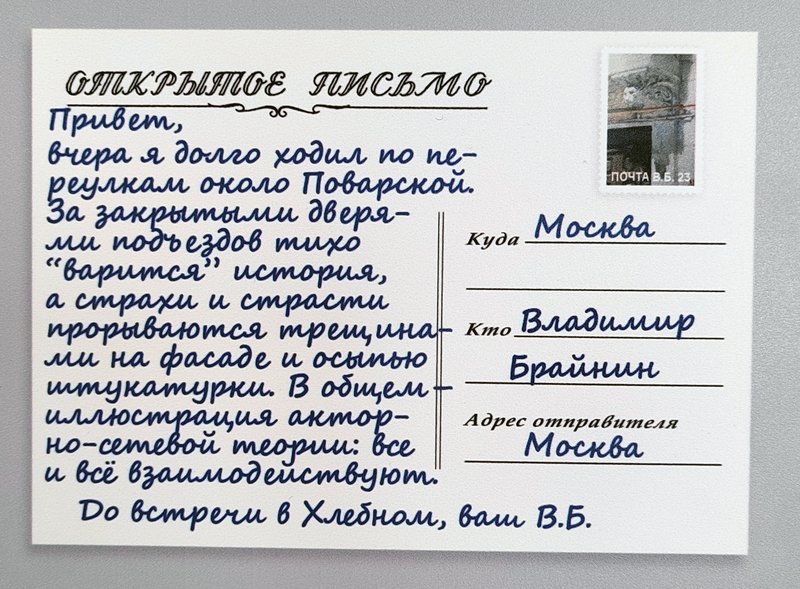 ОТКРЫТОЕ ПИСЬМО
Привет,
вчера я долго ходил по пе-
реулкам около Поварской.
За закрытыми дверя-
ми подъездов тихо
“варится” история,
а страхи и страсти
прорываются трещина-
ми на фасаде и осыпью
штукатурки. В общем –
иллюстрация актор-
но-сетевой теории: все
и всё взаимодействуют.
До встречи в Хлебном, ваш В.Б.
ПОЧТА В.Б. 23
Куда Москва
Кто Владимир
Брайнин
Адрес отправителя
Москва